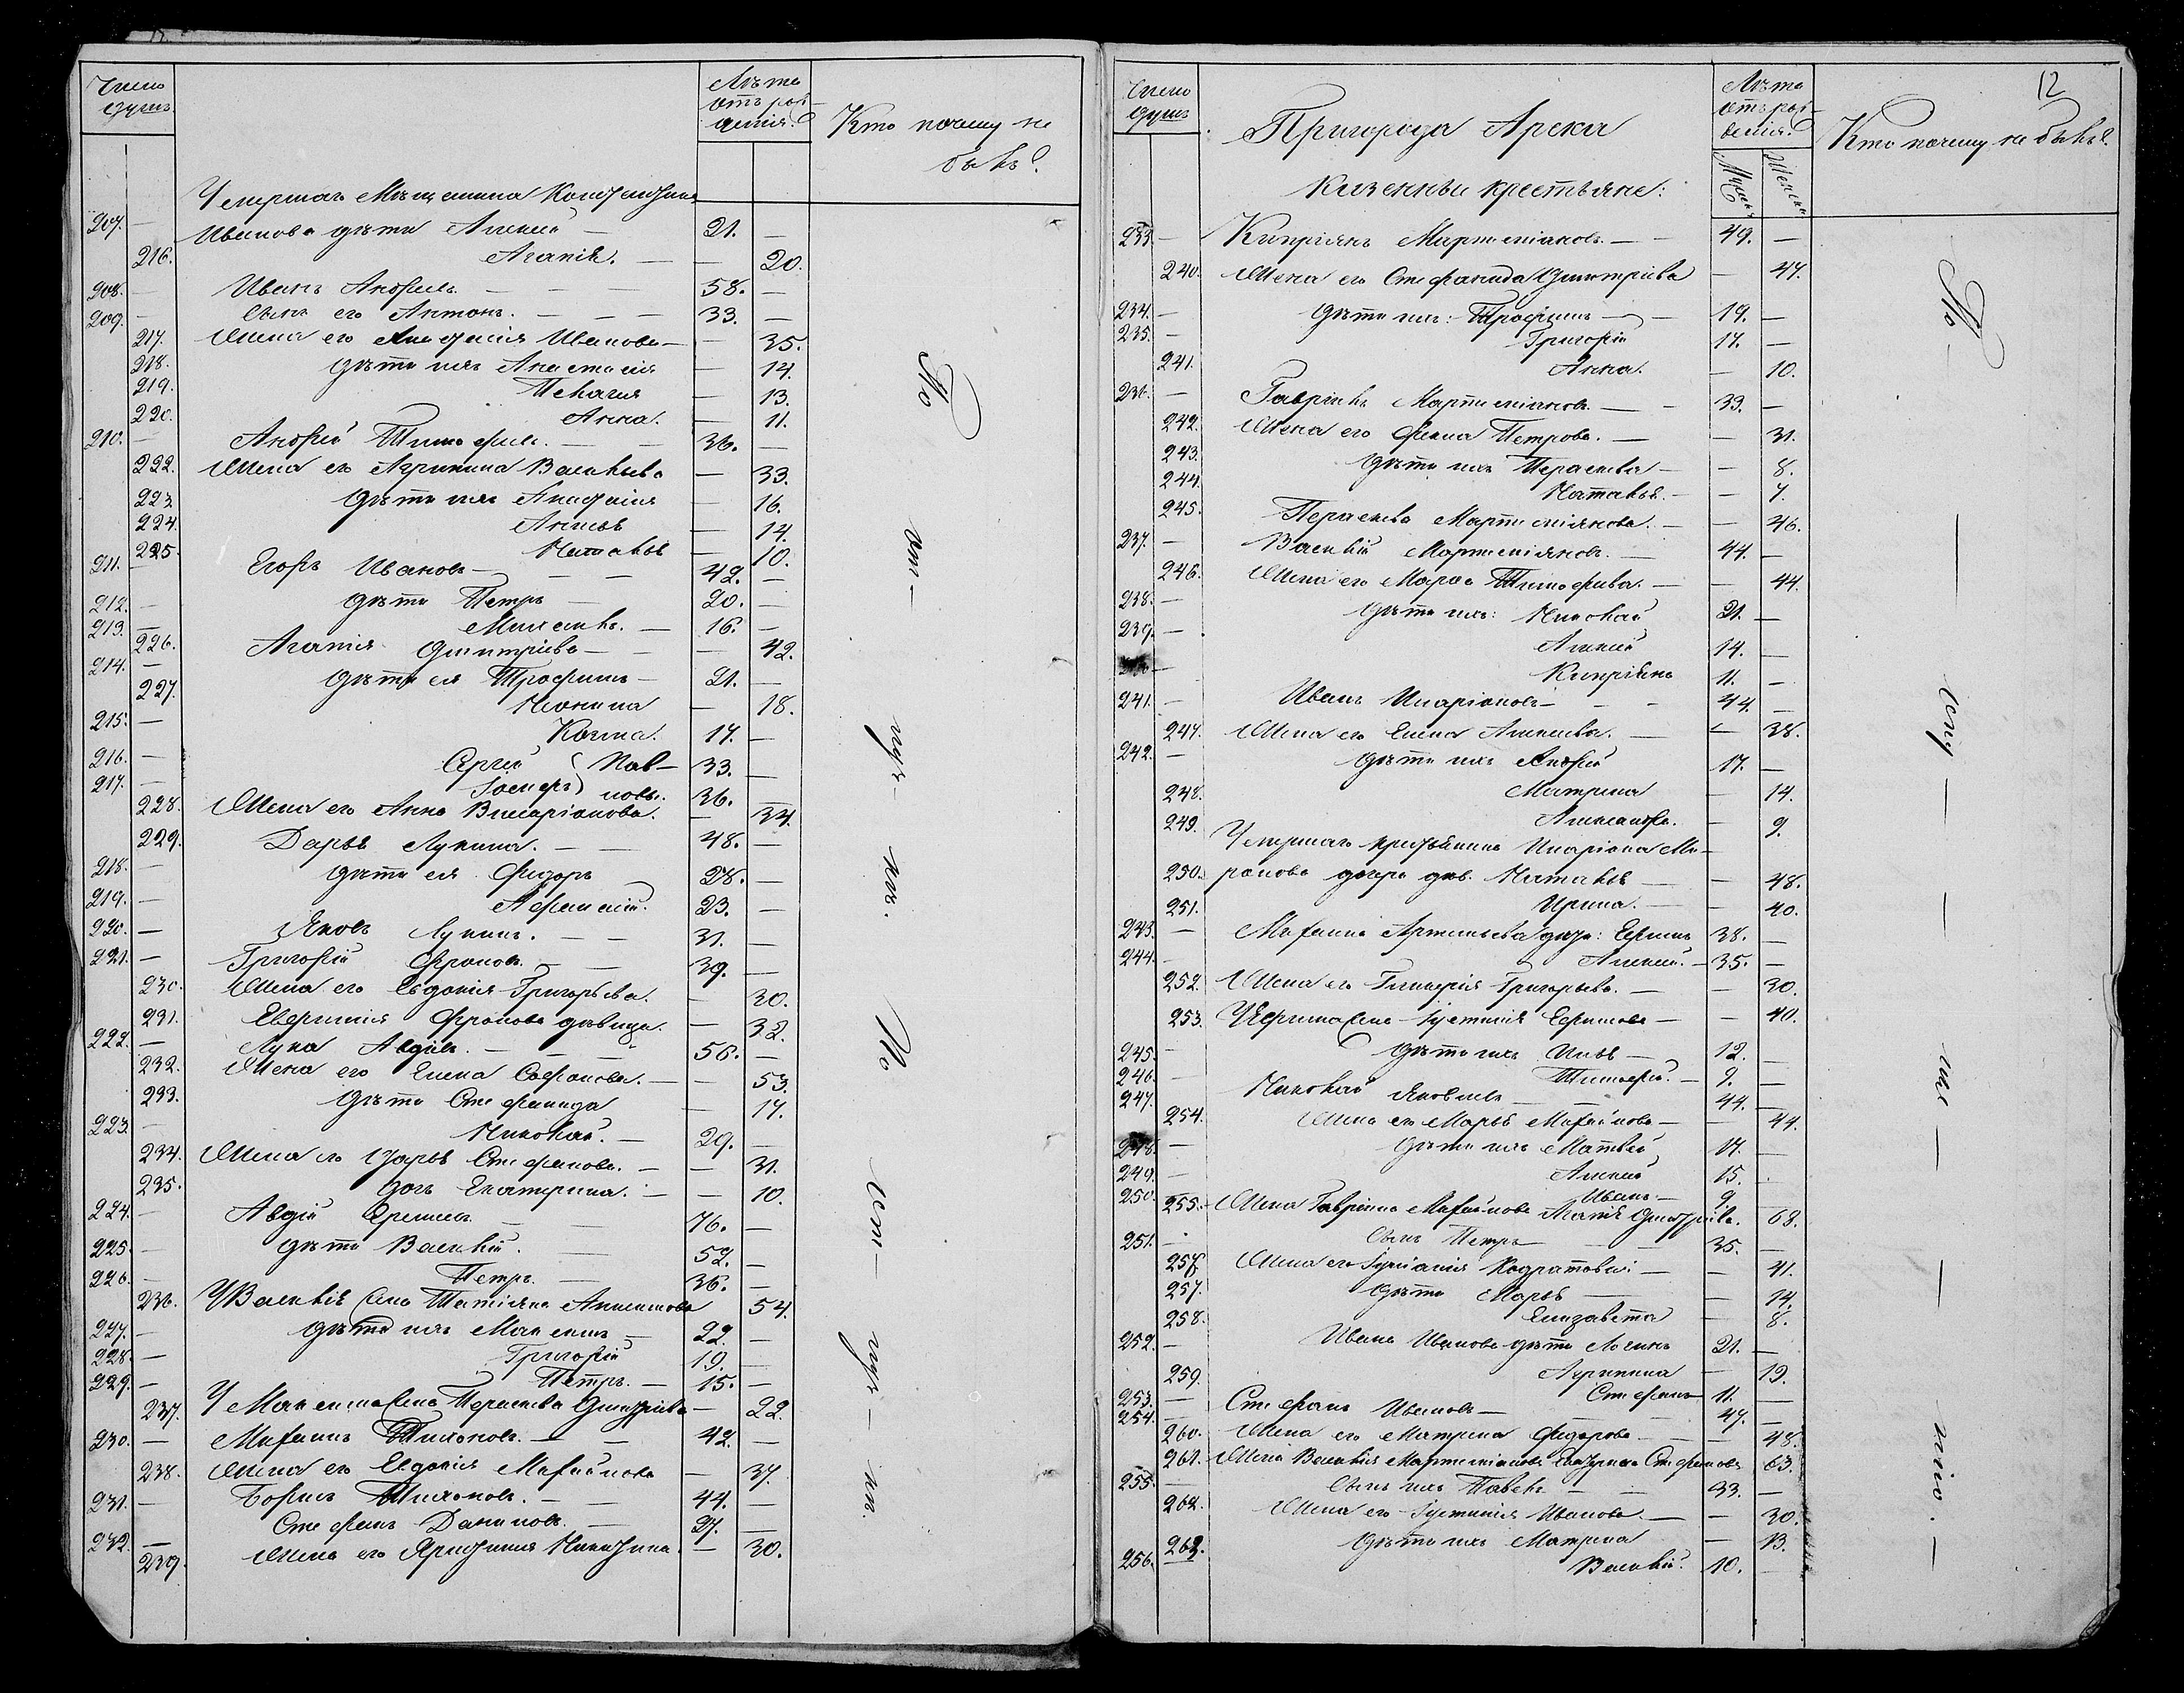 Число душъ
Лѣта отъ рожденія.
Кто почему не былъ?
Умершаго Мѣщанина Константина
207. — Иванова дѣти Алексѣй — 21. —
216. Агапія. — — 20.
208. — Иванъ Андреевъ. — 58. —
209. — Сынъ его Антонъ. — 33. —
217. Жена его Анфисія Иванова — — 35.
218. дѣти ихъ Анастасія — 14.
219. Пелагія — 13.
220. Анна. — 11.
210. — Андрей Тимофеевъ. — 36. —
222. Жена его Агрипина Васильева — 33.
223. дѣти ихъ — 16.
224. — 14.
225. Наталья — 10.
211. — Егоръ Ивановъ — 42. —
212. — дѣти Петръ — 20. —
213. — Михаилъ. — 16. —
226. Агапія Дмитріева — — 42.
214. — дѣти ея Трофимъ — 21. —
227. — 18.
215. — Козма. 17. —
216. — Сергѣй Пав- 33. —
217. — Іосифъ ловы. 36. —
228. Жена его Анна Виссаріонова. — 34.
229. Дарья Лукина. — 48. —
218. — дѣти ея Федоръ 28. —
219. — Афанасій. 23. —
220. — Яковъ Лукинъ. — 31. —
221. — Григорій Фроловъ. — 39. —
230. Жена его Евдокія Григорьева. — 30.
231. Фролова дѣвица. — 32.
222. — Лука Авдѣевъ. — 56. —
232. Жена его Елена Софронова. — — 53.
233. дѣти Стефанида — 17.
223. — Николай. — 29. —
234. Жена его Дарья Стефанова. — — 31.
235. дочь Екатерина. — — 10.
224. — Авдій Ереминъ. 76. —
225. — дѣти Василій. — 52. —
226. — Петръ. — 36. —
236. У Василія Жена Татіана Алексѣева 54.
227. — дѣти ихъ Максимъ — 22. —
228. — Григорій 19. —
229. — Петръ. — 15. —
237. У Максима Жена Параскева Дмитріева — 22.
230. — Михаилъ Тихоновъ. — 42. —
238. Жена его Евдокія Михайлова — 37.
231. — Борисъ Тихоновъ. — 44. —
Стефанъ Даниловъ. — 27. —
232. —
239. Жена его Никитина. — 30.
12
Число душъ
Пригорода Арска
Лѣта отъ рожденія.
Кто почему не былъ?
Казенные крестьяне:
Мужска Женска
233. — Кипріянъ Мартеміановъ. — 49. —
240. Жена его Стефанида Дмитріева — 47.
234. — дѣти ихъ: Трофимъ — 19. —
235. — Григорій 17. —
241. Анна. — 10.
236. — Гавріилъ Мартеміановъ. — 33. —
242. Жена его Фекла Петрова. — — 31.
243. дѣти ихъ Параскева — — 8.
244. Наталья. — — 7.
245. Параскева Мартеміянова. — — 46.
237. — Василій Мартеміяновъ. — 44. —
246. Жена его Марѳа Тимофеева. — — 44.
238. — дѣти ихъ: Николай 21. —
239. — Алексѣй 14. —
Кипріянъ 11. —
241. — Иванъ Иларіоновъ — 44. —
247. Жена его Елена Алексѣева. — — 38.
242. — дѣти ихъ Андрей 17. —
248. Матрона — 14.
249. Александра. — 9.
Умершаго крестьянина Иларіона Ми-
250. ронова дочери дѣв. Наталья — — 48.
251. Ирина. — — 40.
243. — Михаила Артемьева дѣти: Ефимъ 38. —
244. — Алексѣй. — 35. —
252. Жена его Гликерія Григорьева. — — 30.
253. У Ефима Жена Іустинія Ефимова — — 40.
245. — дѣти ихъ Илья — 12. —
246. — Тимофей. — 9. —
247. Николай Яковлевъ — 44. —
254. Жена его Марья Михайлова — — 44.
248. — дѣти ихъ Матвѣй 17. —
249. — Алексѣй 15. —
250. Иванъ — 9. —
255. Жена Гавріила Михайлова Дмитріева. 68.
251. — Сынъ Петръ — 35. —
257. Жена его Іуліанія Кодратова. — — 41.
257. дѣти Марья — — 14.
258. Елизавета — 8.
252. — Ивана Иванова дѣти Логинъ 21. —
259. Агрипина — 19.
253. — Стефанъ 11. —
254. — Стефанъ Ивановъ — 47. —
260. Жена его Матрена Федорова — — 48.
261. Жена Василія Мартеміанова Екатерина Стефанова 63.
255. — Сынъ ихъ Павелъ — 33. —
262. Жена его Іустинія Иванова. — — 30.
263. дѣти ихъ Матрона — 13.
256. — Василій. 10. —